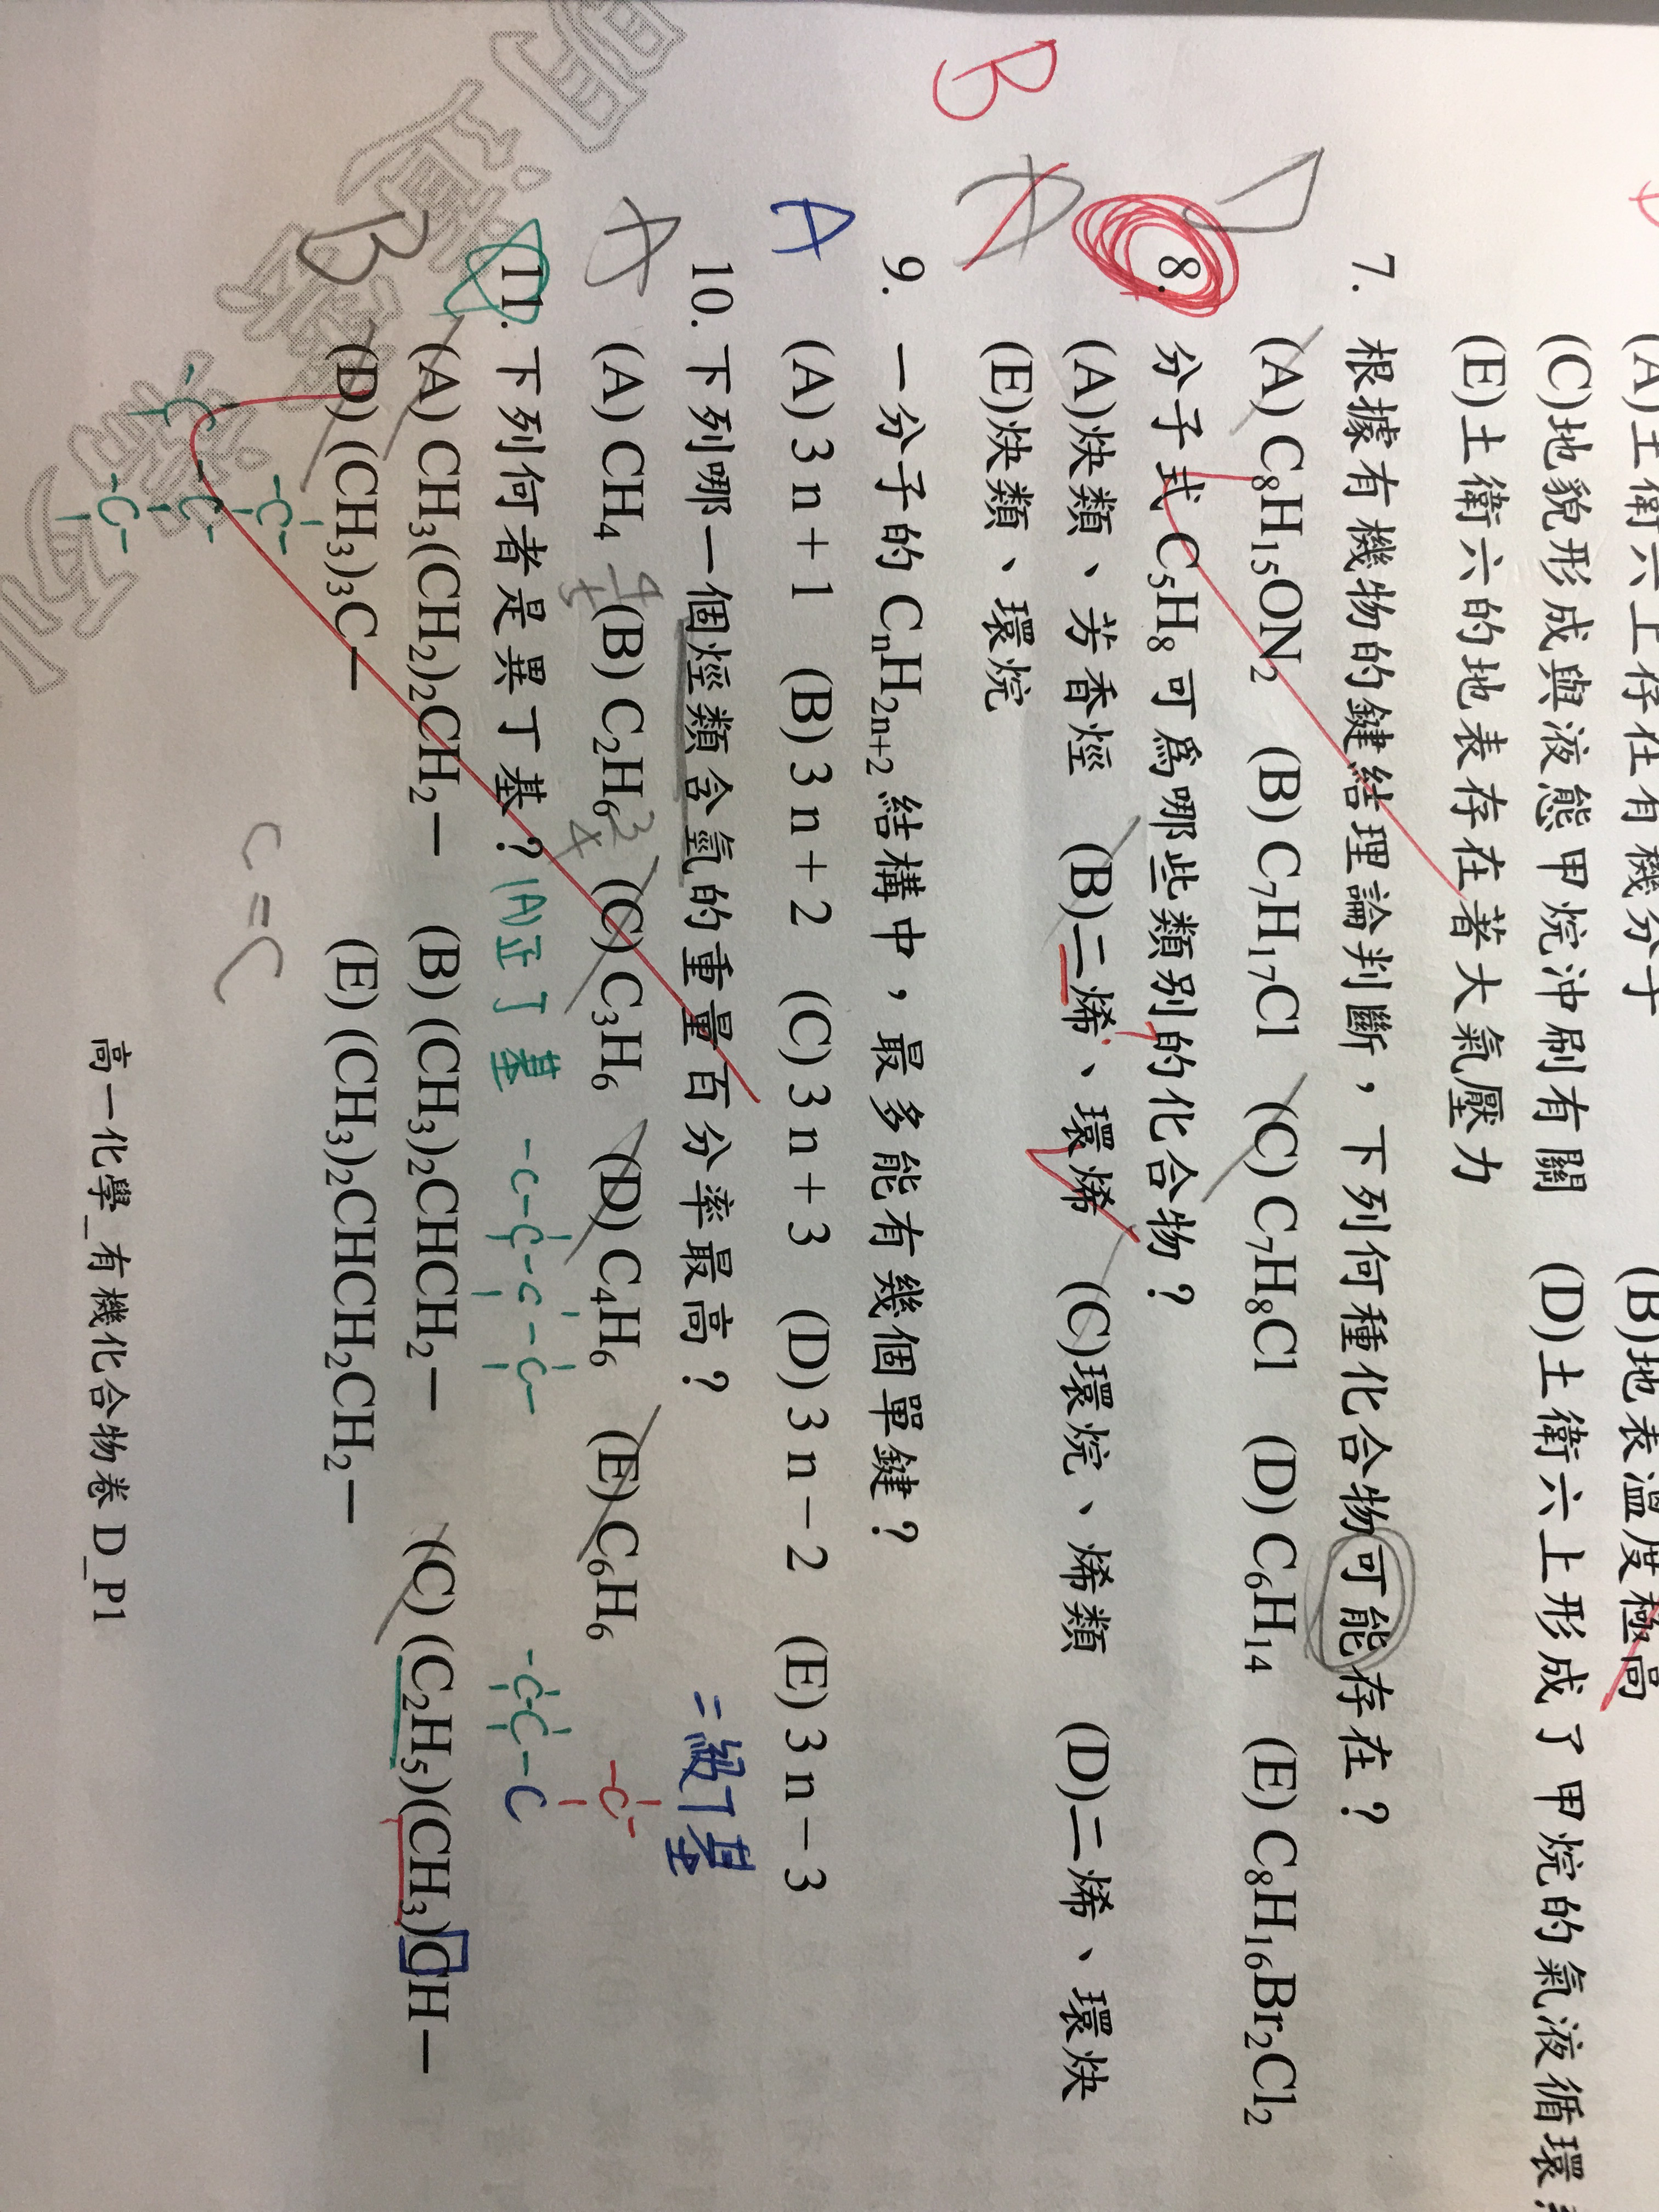 (A)土衛六上存在有機分子 (B)地表溫度極高
(C)地貌形成與液態甲烷沖刷有關 (D)土衛六上形成了甲烷的氣液循環
(E)土衛六的地表存在著大氣壓力
D
7. 根據有機物的鍵結理論判斷,下列何種化合物可能存在?
(A) C₈H₁₅ON₂ (B) C₇H₁₇Cl (C) C₇H₈Cl (D) C₆H₁₄ (E) C₈H₁₆Br₂Cl₂
B A
8. 分子式 C₅H₈可爲哪些類別的化合物?
(A)炔類、芳香烴 (B)二烯、環烯 (C)環烷、烯類 (D)二烯、環炔
(E)炔類、環烷
A
9. 一分子的 CₙH₂ₙ₊₂結構中,最多能有幾個單鍵?
(A) 3 n + 1 (B) 3 n + 2 (C) 3 n + 3 (D) 3 n − 2 (E) 3 n − 3
A
10. 下列哪一個烴類含氫的重量百分率最高?
二級丁基
(A) CH₄ (B) C₂H₆ (C) C₃H₆ (D) C₄H₆ (E) C₆H₆
-C-
B
11. 下列何者是異丁基? (A)正丁基 -C-C-C-C- -C-C-C
(A) CH₃(CH₂)₂CH₂— (B) (CH₃)₂CHCH₂— (C) (C₂H₅)(CH₃)CH—
(D) (CH₃)₃C— (E) (CH₃)₂CHCH₂CH₂—
C=C
高一化學_有機化合物卷 D_P1